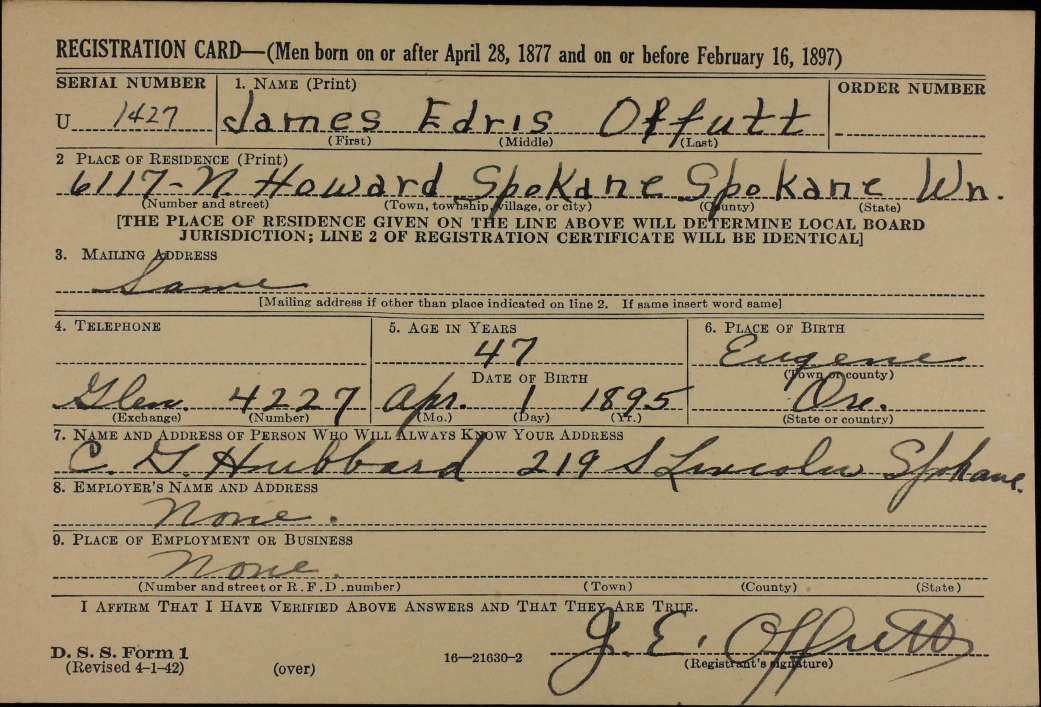 REGISTRATION CARD—(Men born on or after April 28, 1877 and on or before February 16, 1897)
SERIAL NUMBER 1. NAME (Print) ORDER NUMBER
U 1427 James Edris Offutt
(First) (Middle) (Last)
2 PLACE OF RESIDENCE (Print)
6117-N. Howard Spokane Spokane Wn.
(Number and street) (Town, township, village, or city) (County) (State)
[THE PLACE OF RESIDENCE GIVEN ON THE LINE ABOVE WILL DETERMINE LOCAL BOARD
JURISDICTION; LINE 2 OF REGISTRATION CERTIFICATE WILL BE IDENTICAL]
3. MAILING ADDRESS
Same
[Mailing address if other than place indicated on line 2. If same insert word same]
4. TELEPHONE 5. AGE IN YEARS 6. PLACE OF BIRTH
47 Eugene
DATE OF BIRTH (Town or county)
Glen. 4227 Apr. 1 1895 Ore.
(Exchange) (Number) (Mo.) (Day) (Yr.) (State or country)
7. NAME AND ADDRESS OF PERSON WHO WILL ALWAYS KNOW YOUR ADDRESS
C. G. Hubbard 219 S Lincoln Spokane.
8. EMPLOYER'S NAME AND ADDRESS
None.
9. PLACE OF EMPLOYMENT OR BUSINESS
None.
(Number and street or R. F. D. number) (Town) (County) (State)
I AFFIRM THAT I HAVE VERIFIED ABOVE ANSWERS AND THAT THEY ARE TRUE.
J. E. Offutt
D. S. S. Form 1
(Revised 4-1-42) (over) 16—21630-2 (Registrant's signature)